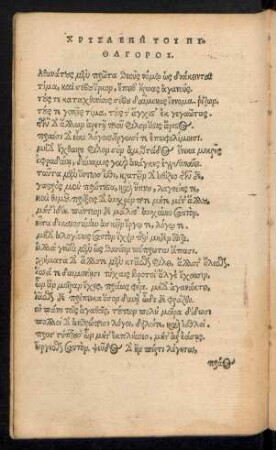 ΧΡΥΣΑ ΕΠΗ ΤΟΥ ΠΥ
ΘΑΓΟΡΟΥ.
Ἀθανάτους μὲν πρῶτα θεοὺς νόμῳ ὡς διάκεινται
τίμα, καὶ σέβου ὅρκον, ἔπειθ' ἥρωας ἀγαυούς.
τούς τε καταχθονίους σέβε δαίμονας ἔννομα ῥέζων.
τούς τε γονεῖς τίμα, τούς τ' ἄγχιστ' ἐκγεγαῶτας.
τῶν δ' ἄλλων ἀρετῇ ποιοῦ φίλον ὅστις ἄριστος.
πραέσι δ' εἶκε λόγοις ἔργοισί τ' ἐπωφελίμοισι.
μηδ' ἔχθαιρε φίλον σὸν ἁμαρτάδος εἵνεκα μικρῆς
ὄφρα δύνῃ, δύναμις γὰρ ἀνάγκης ἐγγύθι ναίει.
ταῦτα μὲν οὕτως ἴσθι, κρατεῖν δ' εἰθίζεο τῶνδε,
γαστρὸς μὲν πρώτιστα, καὶ ὕπνου, λαγνείης τε,
καὶ θυμοῦ. πρήξεις δ' αἰσχρόν ποτε μήτε μετ' ἄλλου,
μήτ' ἰδίῃ. πάντων δὲ μάλιστ' αἰσχύνεο σαυτόν.
εἶτα δικαιοσύνην ἀσκεῖν ἔργῳ τε, λόγῳ τε.
μηδ' ἀλογίστως σαυτὸν ἔχειν περὶ μηδὲν ἔθιζε.
ἀλλὰ γνῶθι μὲν ὡς θανέειν πέπρωται ἅπασι.
χρήματα δ' ἄλλοτε μὲν κτᾶσθαι φιλεῖ, ἄλλοτ' ὀλέσθαι.
ὅσσα τε δαιμονίῃσι τύχαις βροτοὶ ἄλγε' ἔχουσιν,
ὧν ἂν μοῖραν ἔχῃς, πράως φέρε, μηδ' ἀγανάκτει,
ἰᾶσθαι δὲ πρέπει καθ' ὅσον δύνῃ ὧδε δὲ φράζευ.
οὐ πάνυ τοῖς ἀγαθοῖς, τούτων πολὺ μοῖρα δίδωσι
πολλοὶ δ' ἀνθρώποισι λόγοι, δειλοί τε, καὶ ἐσθλοὶ
προσπίπτουσ', ὧν μήτ' ἐκπλήσσεο, μήτ' ἄρ' ἐάσῃς
εἴργεσθαι σαυτόν. ψεῦδος δ' ἤν πέρ τι λέγηται,
πράως